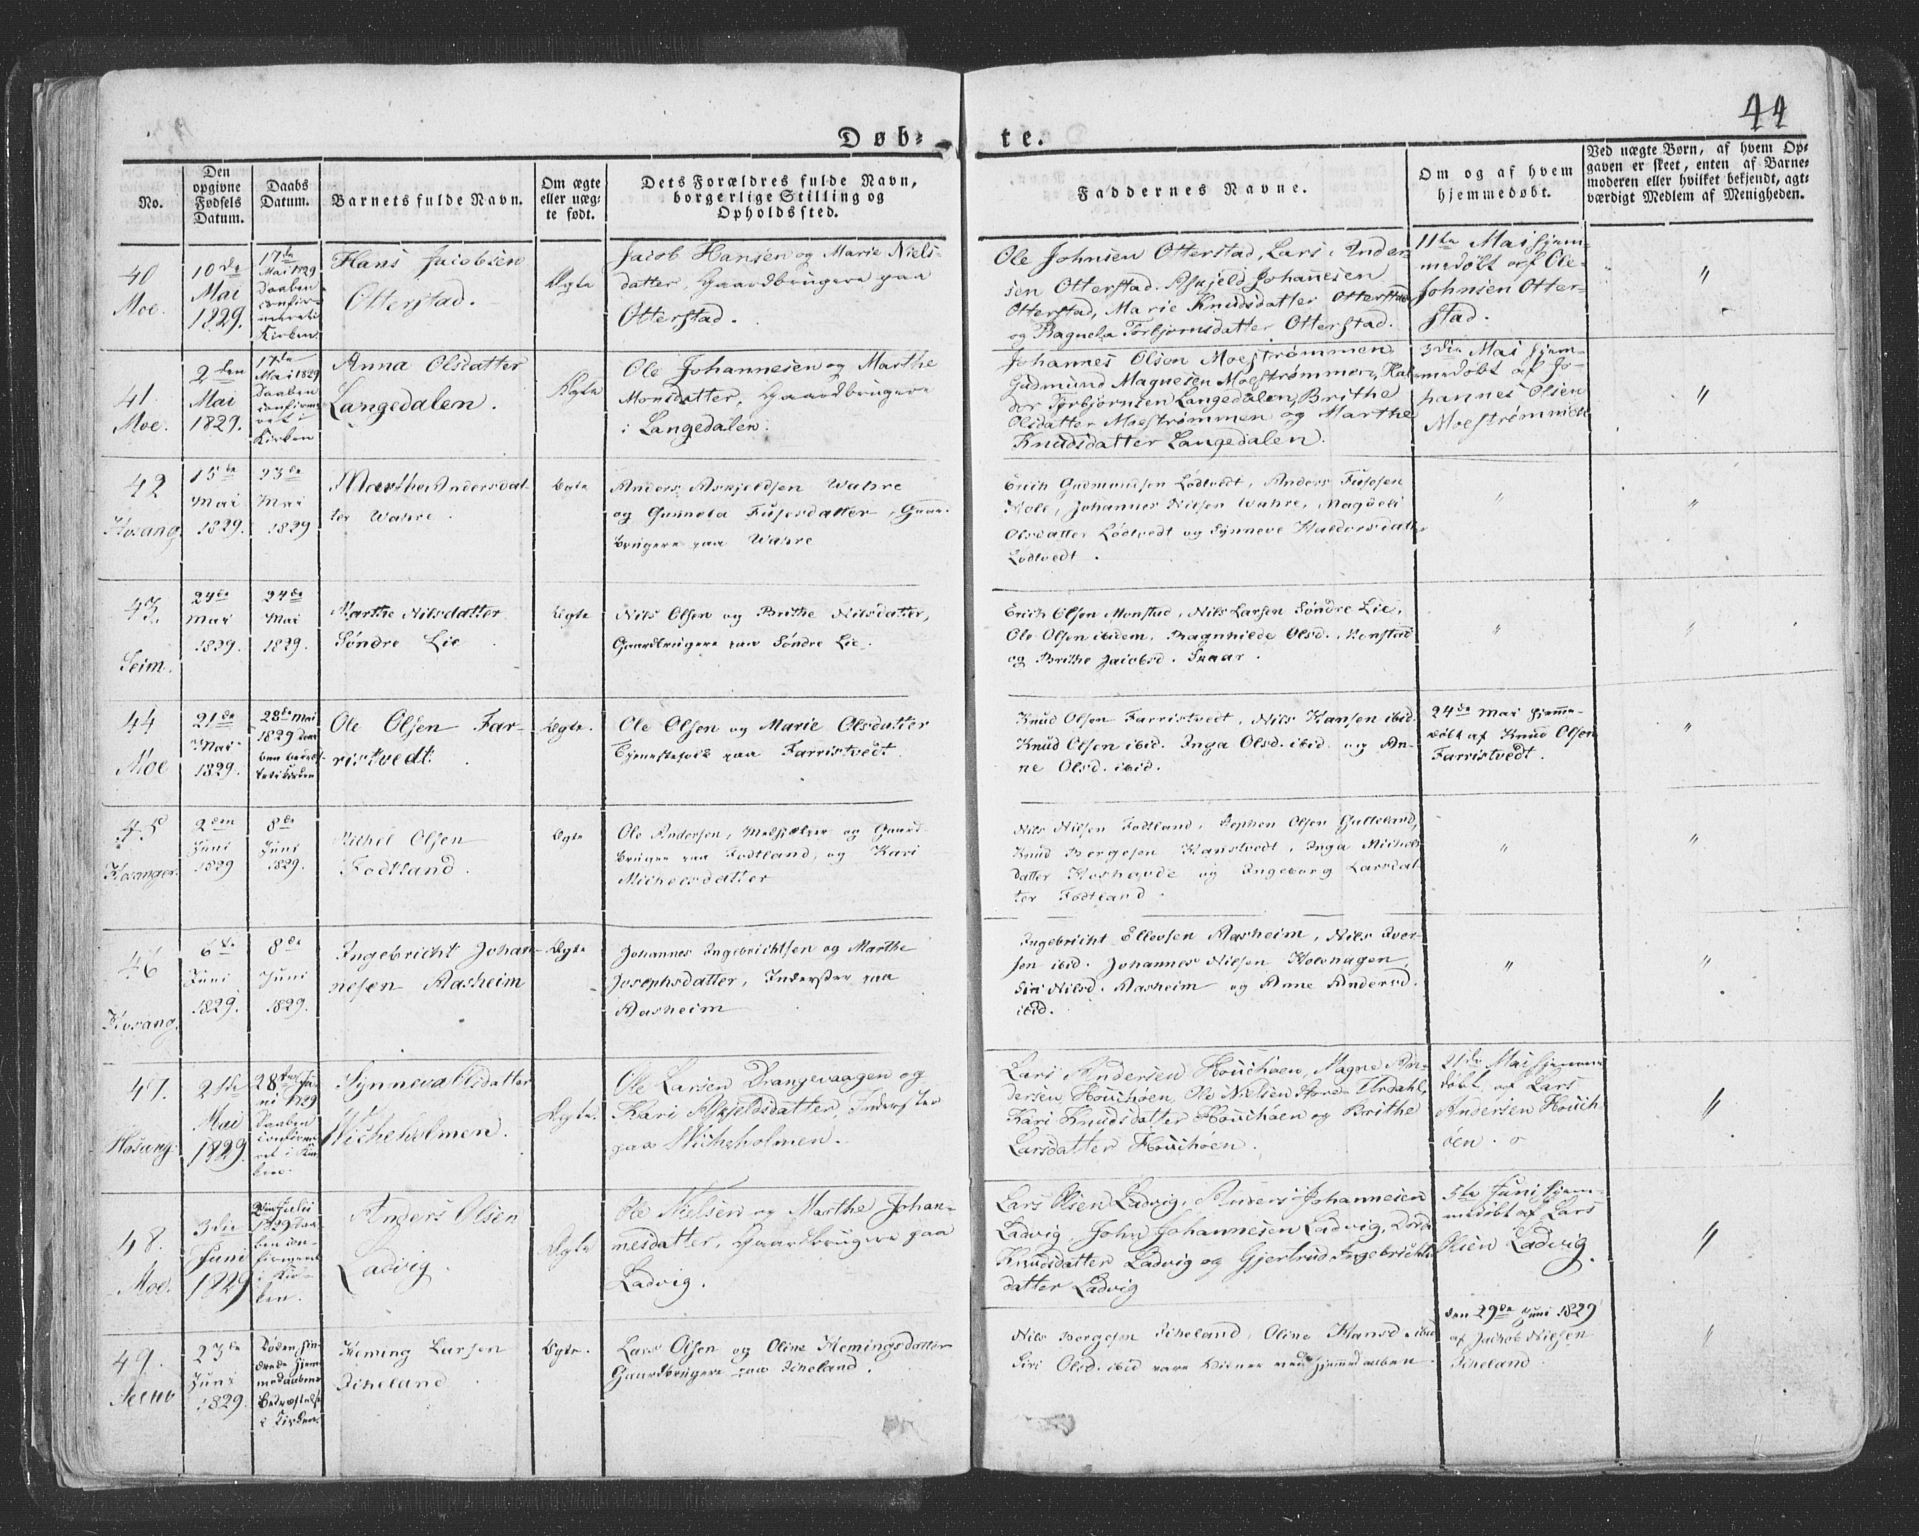 44
Døb-
te.
No.
Den
opgivne
Fødsels
Datum.
Daabs
Datum.
Barnets fulde Navn.
Om ægte
eller uæg-
te født.
Dets Forældres fulde Navn,
borgerlige Stilling og
Opholdssted.
Faddernes Navne.
Om og af hvem
hjemmedøbt.
Ved uægte Børn, af hvem Op-
gaven er skeet, enten af Barne-
moderen eller hvilket bekjendt, agt-
værdigt Medlem af Menigheden.
40
Moe.
10de
Mai
1829.
17de
Mai 1829
Daaben
Kirken
Hans Jacobsen
Otterstad.
Ægte
Jacob Hansen og Marie Niels-
datter, Gaardbrugere paa
Otterstad.
Ole Johnsen Otterstad, Lars Ander-
sen Otterstad. Askjeld Johannesen
Otterstad, Marie Knudsdatter Otterstad
og Ragnela Torbjørnsdatter Otterstad.
11te Mai hjem-
medøbt af Ole
Johnsen Otter-
stad.
"
41.
Moe.
2den
Mai
1829.
17de
Mai 1829
Daaben
i
Kirken
Anna Olsdatter
Langedalen.
Ægte
Ole Johannesen og Marthe
Monsdatter, Gaardbrugere
i Langedalen.
Johannes Olsen Moestrømmen
Gudmund Magnesen Moestrømmen, Hal-
dor Torbjørnsen Langedalen, Brithe
Olsdatter Moestrømmen og Marthe
Knudsdatter Langedalen.
3die Mai hjem-
medøbt af Jo-
hannes Olsen
Moestrømmen
"
42
Hosang.
15de
Mai
1829.
23de
Mai
1829
Marthe Andersdat-
ter Wahre.
Ægte
Anders Askjeldsen Wahre
og Gunnela Fusesdatter, Gaar-
brugere paa Wahre
Erich Gudmundsen Lødtvedt, Anders Fusesen
Hole, Johannes Nilsen Wahre, Magdeli
Olsdatter Lødtvedt og Synneve Haldorsdater
Lødtvedt.
"
"
43.
Seim.
24de
Mai
1829.
24de
Mai
1829.
Marthe Nilsdatter
Søndre Lie
Ægte
Nils Olsen og Brithe Nilsdatter,
Gaardbrugere paa Søndre Lie.
Erich Olsen Monstad, Nils Larsen Søndre Lie,
Ole Olsen ibidem, Ragnhilde Olsd. Monstad
og Brithe Jacobsd.
"
"
44
Moe
21de
Mai
1829.
28de Mai
1829
Ole Olsen Far-
ristvedt.
Ægte.
Ole Olsen og Marie Olsdatter
Tjenestefolk paa Farristvedt
Knud Olsen Farristvedt, Nils Hansen ibid.
Knud Olsen ibid. Inga Olsd. ibid. og An-
ne Olsd. ibid.
24de Mai hjemme-
døbt af Knud Olsen
Farristvedt.
"
45
Hosanger.
2den
Juni
1829
8de
Juni
1829.
Michel Olsen
Fodtland.
Ægte
Ole Andersen, og Gaard-
bruger paa Fodtland, og Kari
Michelsdatter
Nils Nilsen Fodtland, Olsen
Knud Børgesen Hanstvedt, Inga Michels-
datter og Ingeborg Larsdat-
ter Fodtland.
"
"
46
Hosang.
6te
Juni
1829.
8de
Juni
1829.
Ingebricht Johan-
nesen Aasheim
Ægte
Johannes Ingebrichtsen og Marthe
Josephsdatter, Inderster paa
Aasheim
Ingebricht Ellevsen Aasheim, Nils Iver-
sen ibid. Johannes Nilsen
Siri Nilsd. Aasheim og Anne Andersd.
ibid.
"
"
47.
Hosang.
21de
Mai
1829.
1829
Daaben
Synneva Olsdatter
Wicheholmen.
Ægte.
Ole Larsen Drangevaagen og
Kari Askjeldsdatter, Inderster
paa Wicheholmen.
Lars Andersen Houchøen, Magne An-
dersen Houchøen, Ole Nielsen
Kari Knudsdatter Houchøen og Brithe
Larsdatter Houchøen.
21de Mai hjemme-
døbt af Lars
Andersen Houch-
øen.
"
48.
Moe.
3die
Juni
1829
Anders Olsen
Ladvig.
Ægte
Ole Nielsen og Marthe Johan-
nesdatter, Gaardbrugere paa
Ladvig.
Lars Olsen Ladvig, Anders Johannesen
Ladvig, John Johannesen Ladvig,
Knudsdatter Ladvig og Gjertrud Ingebrichts-
datter Ladvig
5te Juni hjem-
medøbt af Lars
Olsen Ladvig.
"
49.
23de
Juni
1829.
Heming Larsen
Ægte.
Lars Olsen og Oline Hemingsdatter
Gaardbrugere paa
Nils Børgesen Oline Hansd. ibid
Siri Olsd. ibid vare Vidner ved hjemmedaaben.
den 29de Juni 1829
af Jacob Nilsen
"